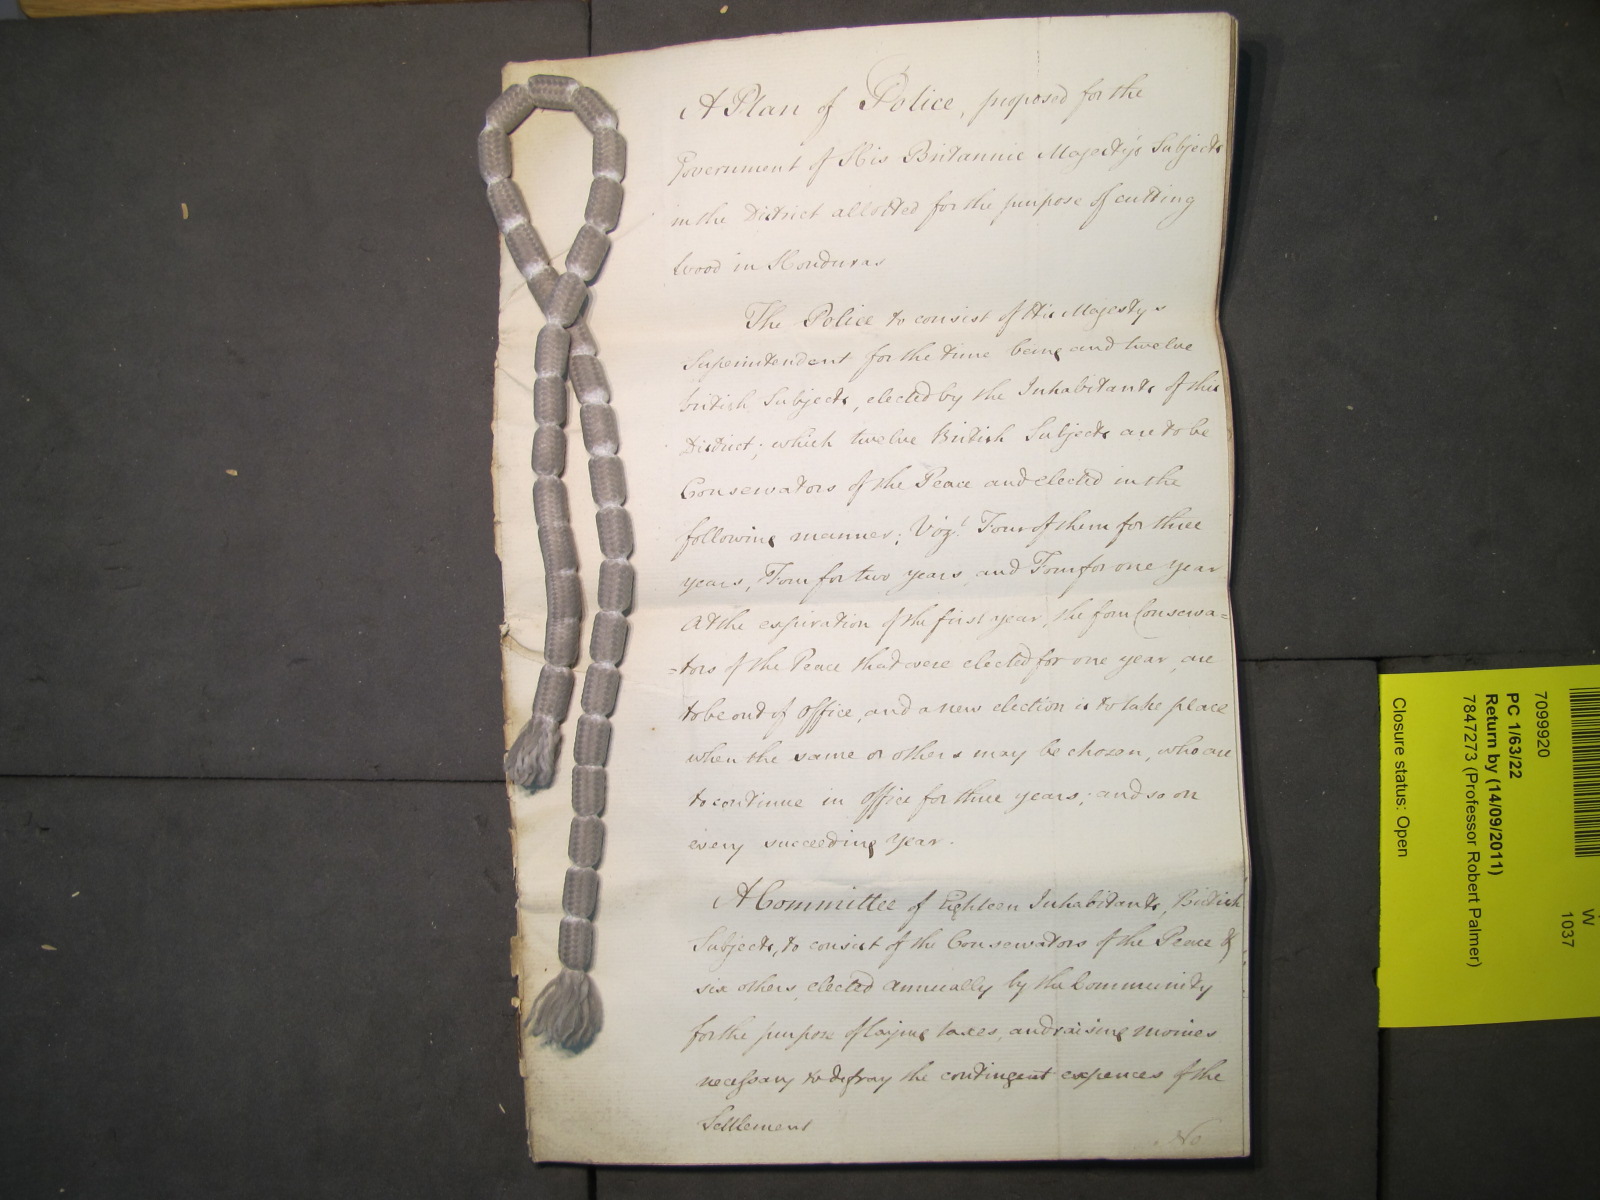 A Plan of Police, proposed for the
Government of His Britannic Majesty's Subjects
in the District allotted for the purpose of cutting
Wood in Honduras
The Police to consist of His Majestys
Superintendent for the time being and twelve
British Subjects, elected by the Inhabitants of this
District; which twelve British Subjects are to be
Conservators of the Peace and elected in the
following manner; Vizt. Four of them for three
years, Four for two years, and Four for one year
At the expiration of the first year, the four Conserva=
=tors of the Peace that were elected for one year, are
to be out of Office, and a new election is to take place
when the same or others may be chosen, who are
to continue in Office for three years; and so on
every succeeding year.
A Committee of Eighteen Inhabitants, British
Subjects, to consist of the Conservators of the Peace &
six others, elected annually by the Community
for the purpose of laying taxes, and raising monies
necessary to defray the contingent expences of the
Settlement
No
7099920
PC 1/63/22
Return by (14/09/2011)
7847273 (Professor Robert Palmer)
Closure status: Open
W
1037